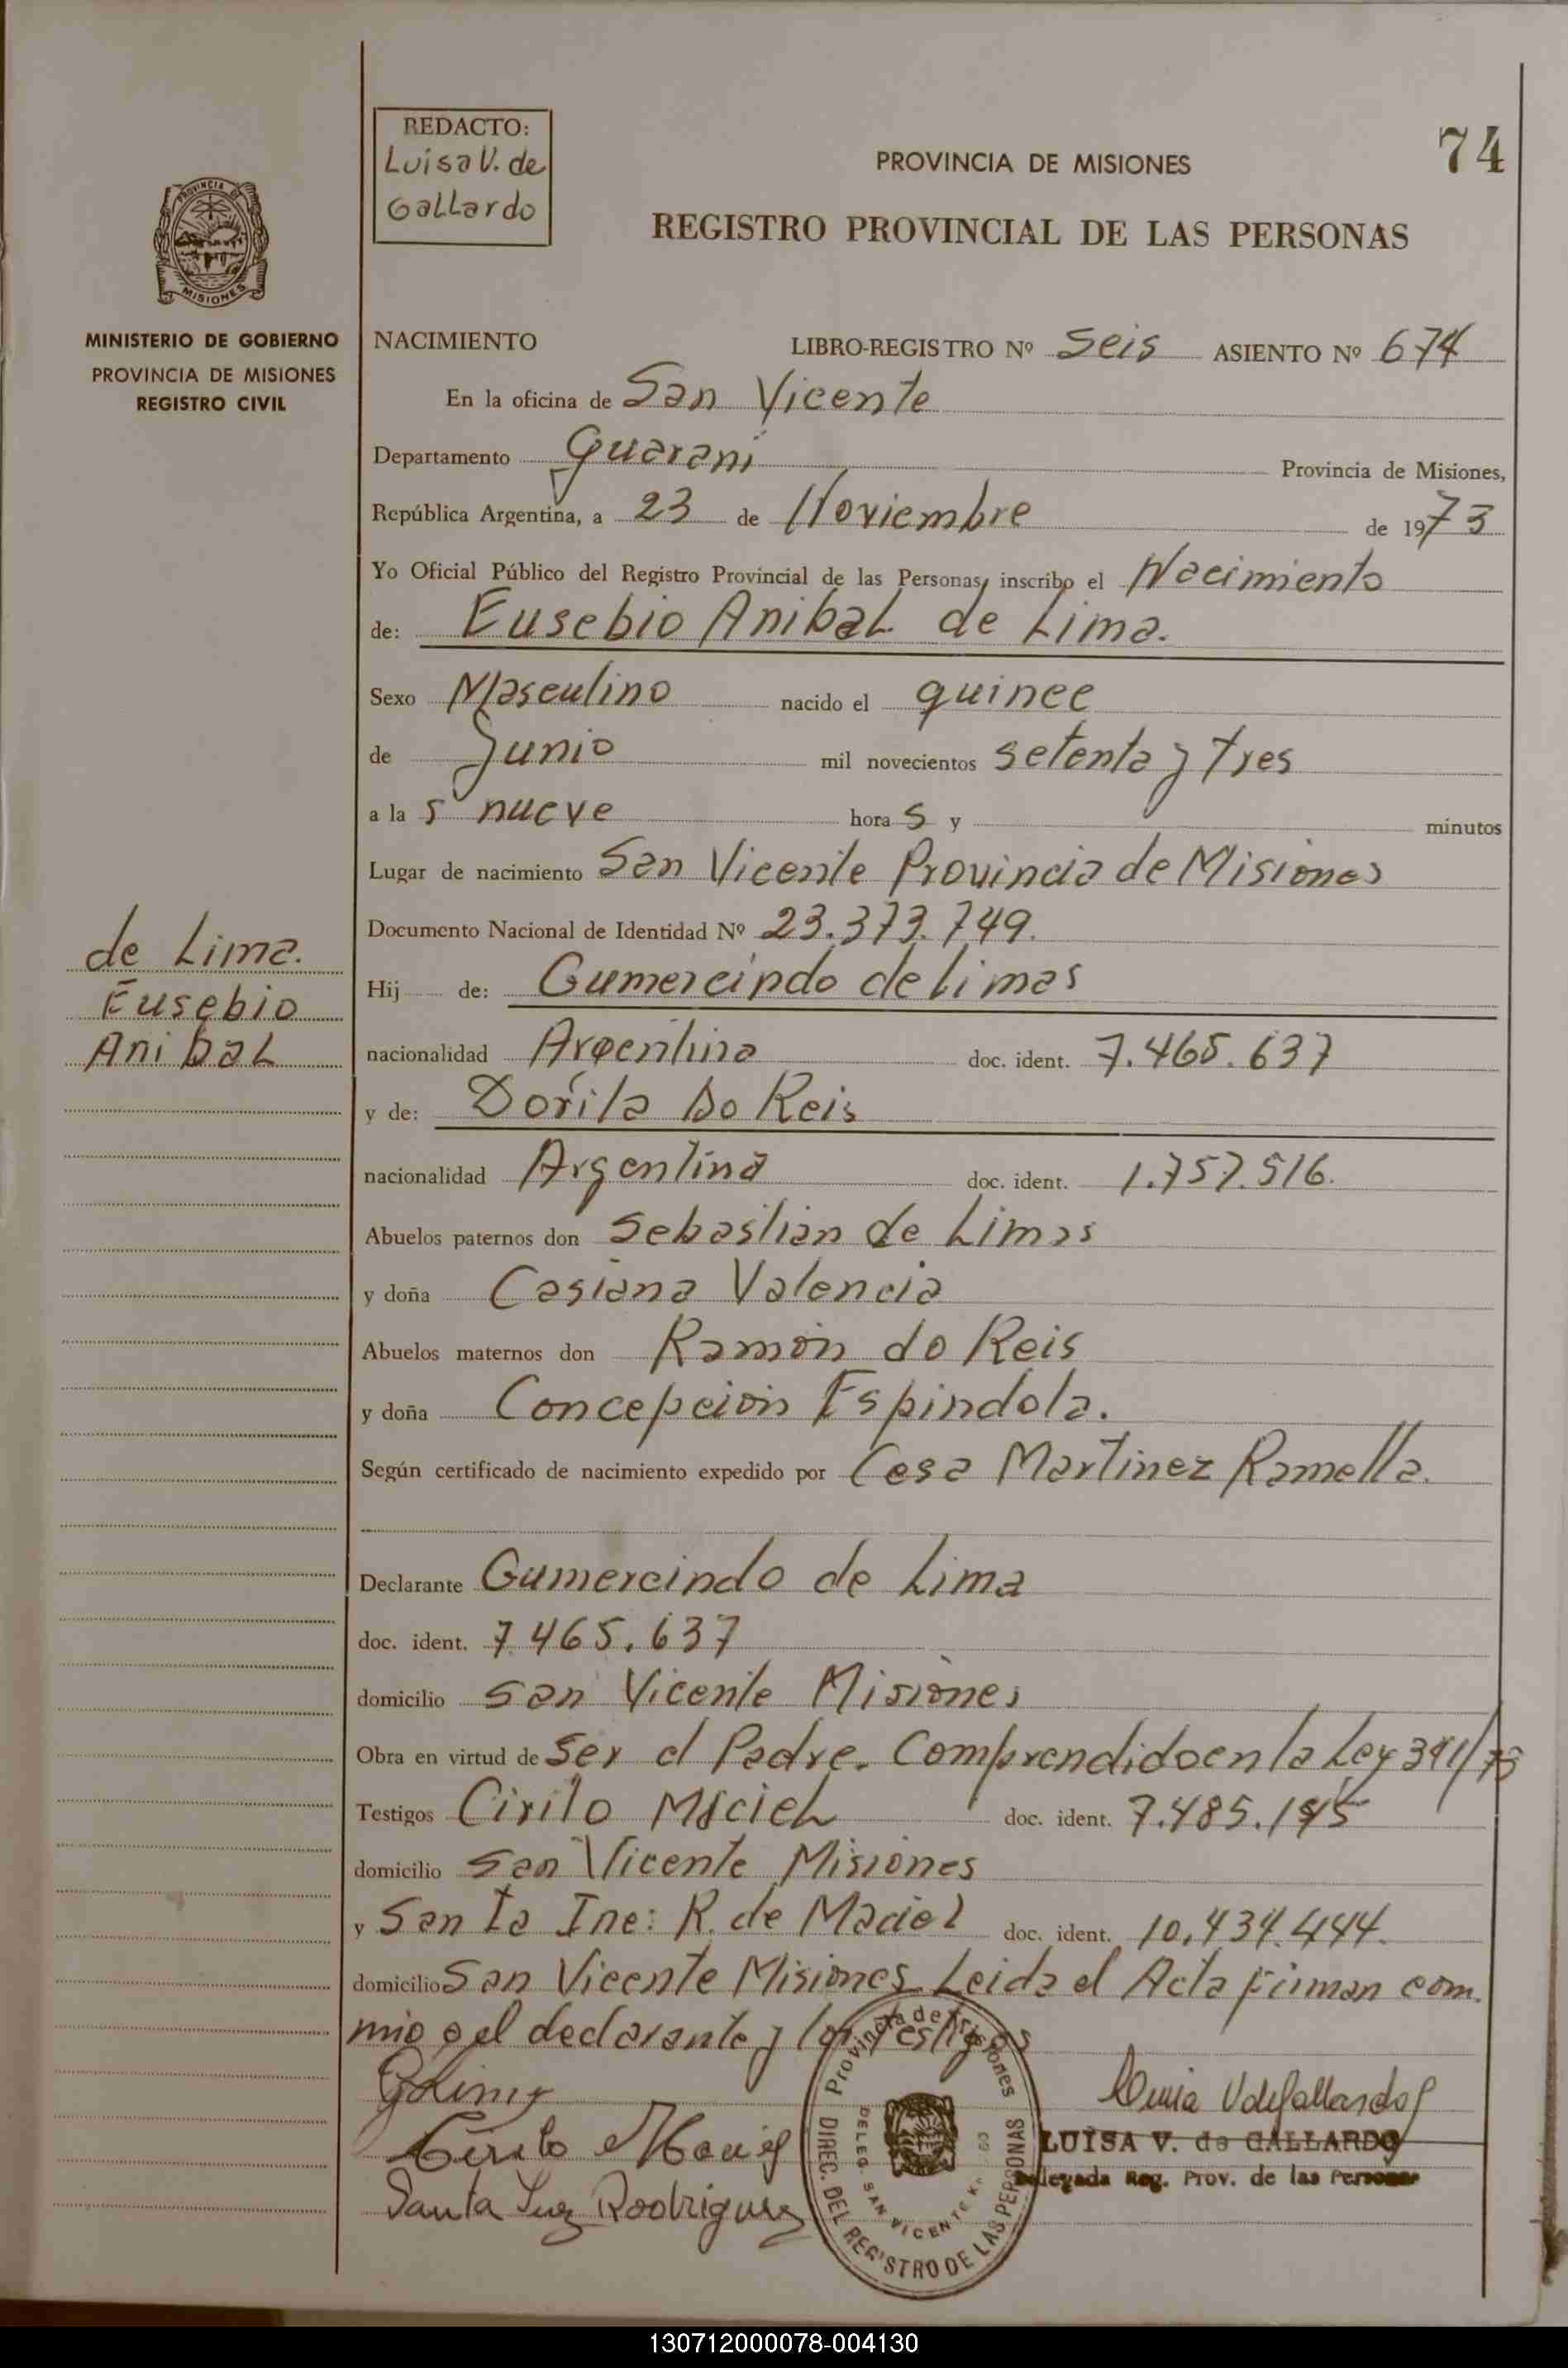 74
REDACTO:
Luisa V. de
Gallardo
PROVINCIA DE MISIONES
REGISTRO PROVINCIAL DE LAS PERSONAS
PROVINCIA DE
MISIONES
MINISTERIO DE GOBIERNO
PROVINCIA DE MISIONES
REGISTRO CIVIL
NACIMIENTO LIBRO-REGISTRO Nº Seis ASIENTO Nº 674
En la oficina de San Vicente
Departamento Guarani Provincia de Misiones,
República Argentina, a 23 de Noviembre de 1973
Yo Oficial Público del Registro Provincial de las Personas, inscribo el Nacimiento
de: Eusebio Anibal de Lima.
Sexo Masculino nacido el quince
de Junio mil novecientos setenta y tres
a la s nueve hora s y minutos
Lugar de nacimiento San Vicente Provincia de Misiones
Documento Nacional de Identidad Nº 23.373.749.
de Lima.
Eusebio
Anibal
Hij de: Gumercindo de limas
nacionalidad Argentina doc. ident. 7.465.637
y de: Dorila Do Reis
nacionalidad Argentina doc. ident. 1.757.516.
Abuelos paternos don Sebastian de Limas
y doña Casiana Valencia
Abuelos maternos don Ramón do Reis
y doña Concepción Espindola.
Según certificado de nacimiento expedido por Cesa Martinez Ramella.
Declarante Gumercindo de Lima
doc. ident. 7.465.637
domicilio San Vicente Misiones
Obra en virtud de Ser el Padre. Comprendido en la Ley
Testigos Cirilo Maciel doc. ident.
domicilio San Vicente Misiones
y Santa Ine: R. de Maciel doc. ident. 10.434.444.
domicilio San Vicente Misiones Leida el Acta firman com.
migo el declarante y los testigos
Cirilo Maciel
Santa Rodriguez
LUISA V. de GALLARDO
Delegada Reg. Prov. de las Personas
Provincia de Misiones
DIREC. DEL REGISTRO DE LAS PERSONAS
DELEG. SAN VICENTE
130712000078-004130